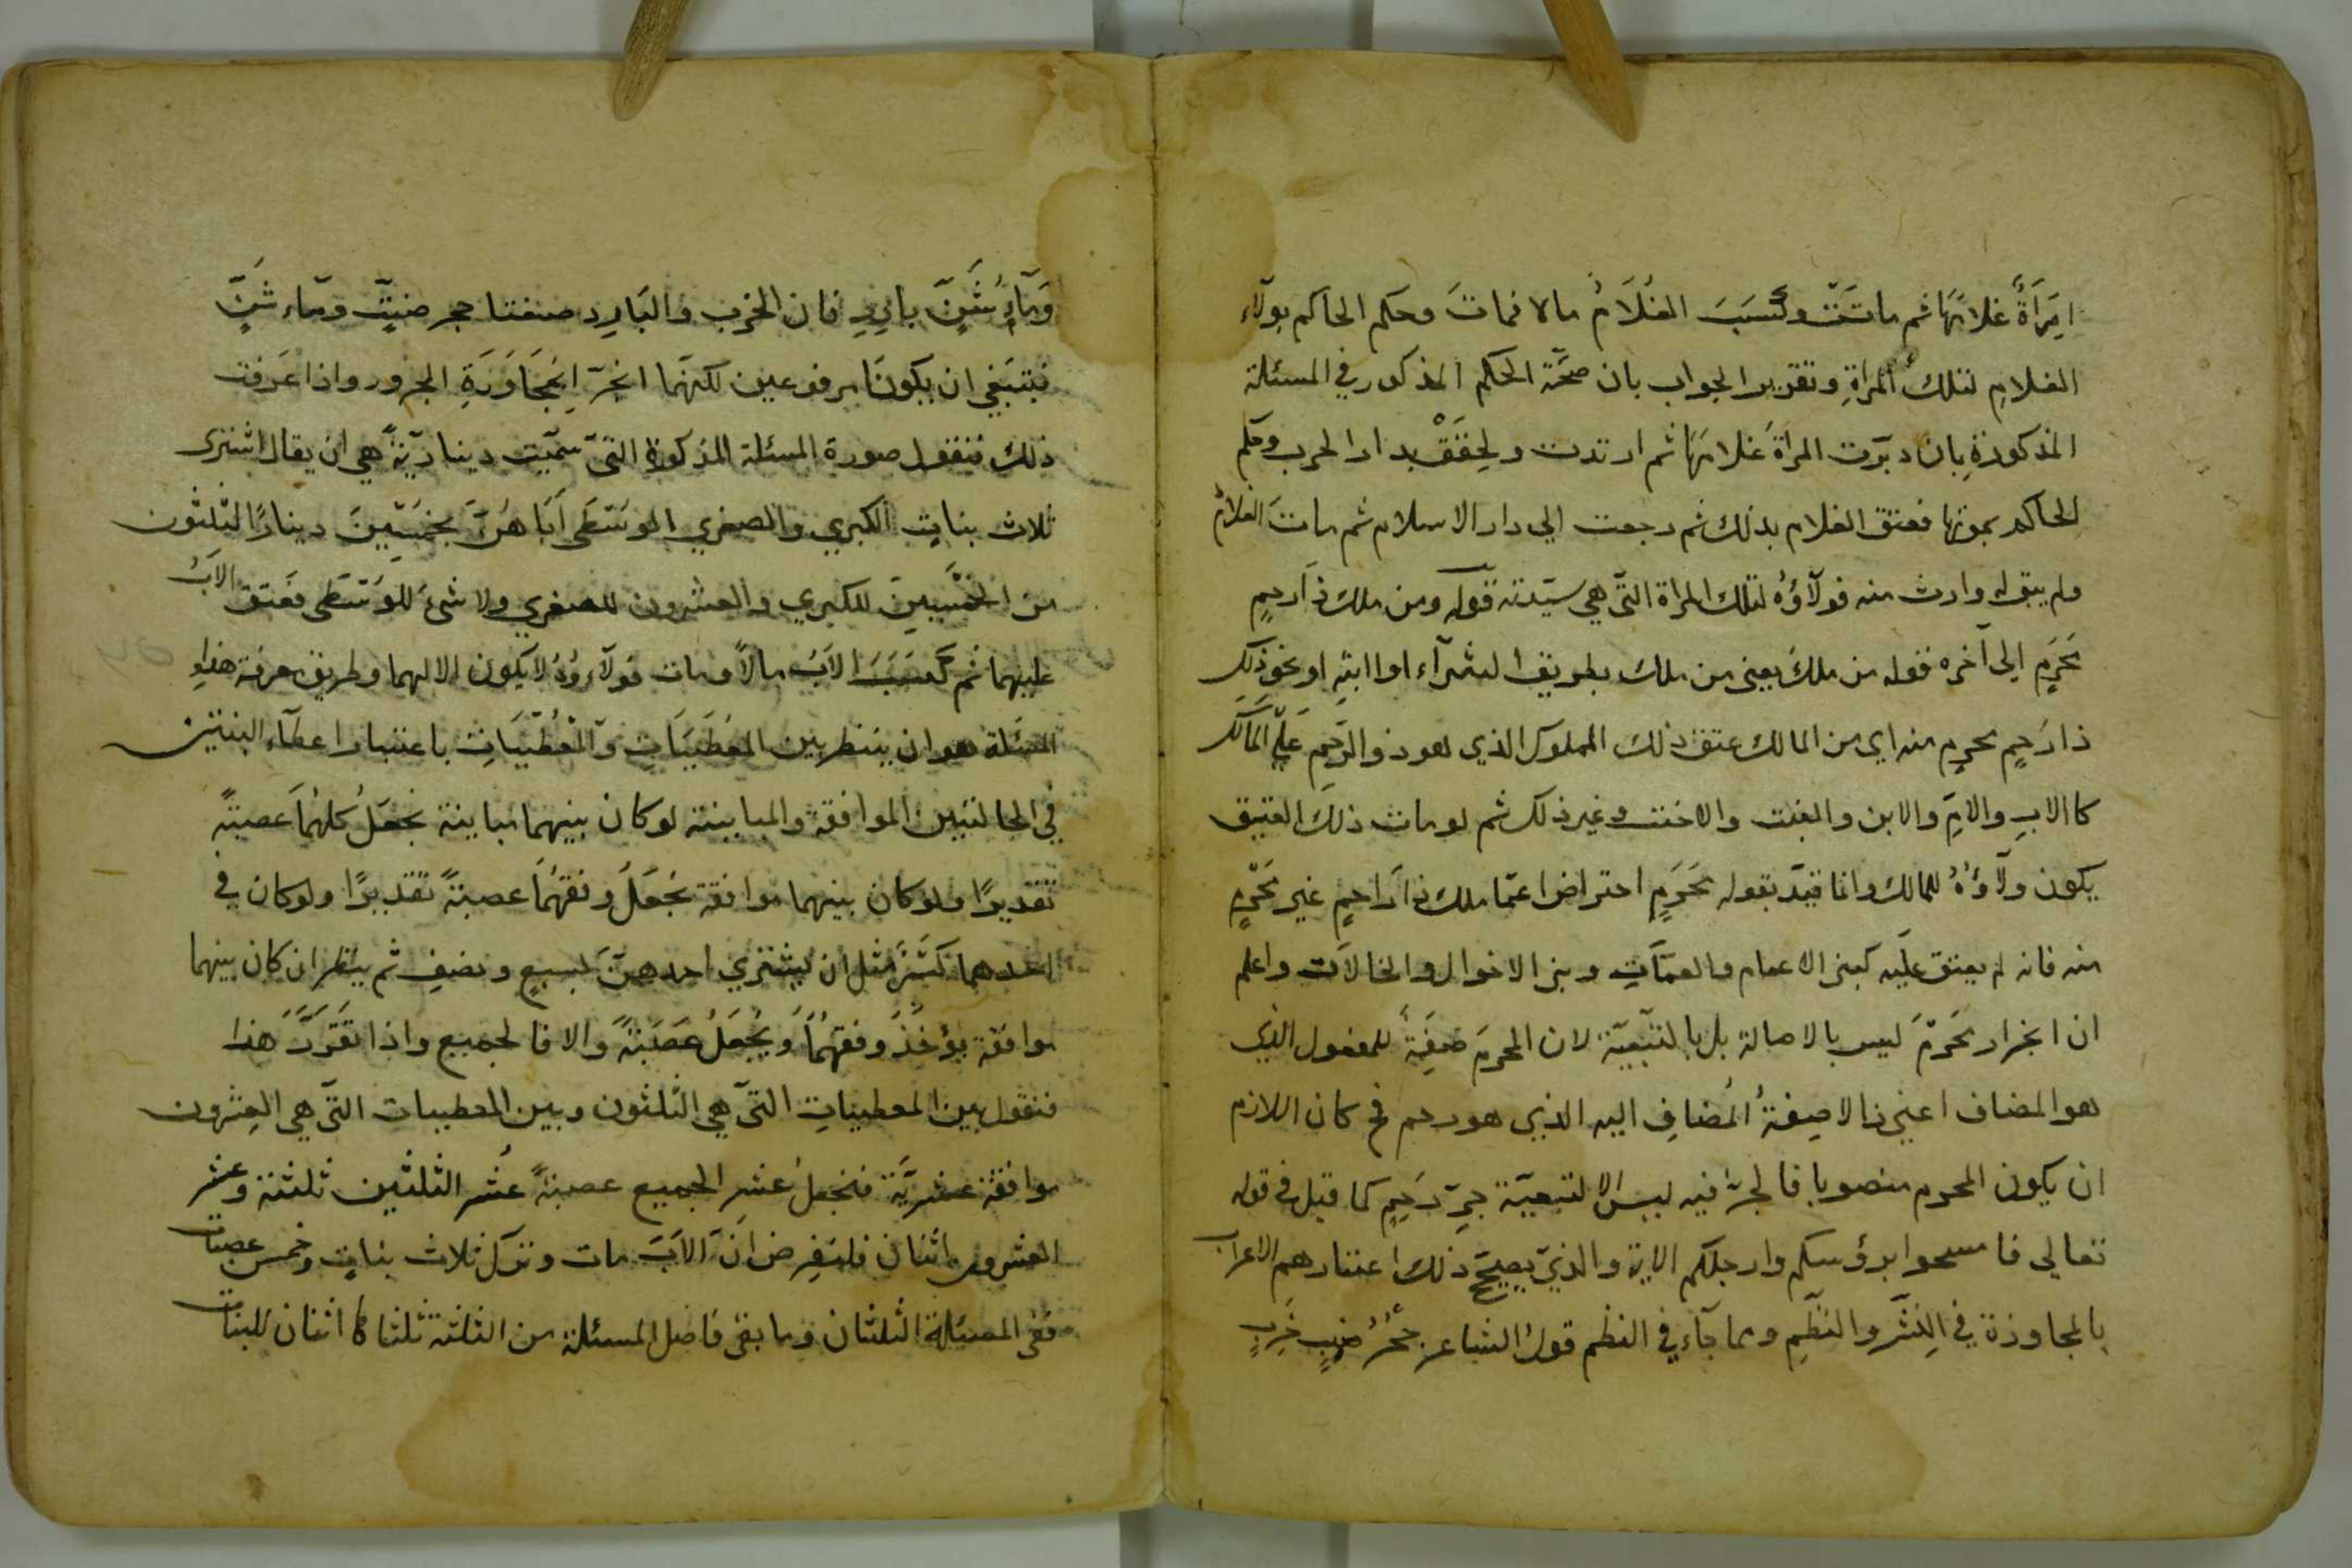 امرأة غلامها ثم ماتت وكسب الغلام مالا فمات وحكم الحاكم بولاء
الغلام لتلك المراة وتقرير الجواب بان صحة الحكم المذكور في المسئلة
المذكورة بان دبرت المراة غلامها ثم ارتدت ولحقت بدار الحرب وحكم
الحاكم بموتها فعتق الغلام بذلك ثم رجعت الي دار الاسلام ثم مات الغلام
ولم يبق له وارث منه فولاؤه لتلك المراة التي هي سيدته قوله ومن ملك ذا رحم
محرم الى آخره فقوله من ملك يعنى من ملك بطريق الشرآء او او نحو ذلك
ذا رحم محرم منه اى من المالك عتق ذلك المملوك الذي هو ذو الرحم على المالك
كالاب والام والابن والبنت والاخت وغير ذلك ثم لو مات ذلك العتيق
يكون ولاؤه للمالك وانما قيد بقوله محرم احتراضا عما ملك ذا راحم غير محرم
منه فانه لم يعتق عليه كبنى الاعمام والعمات وبنى الاخوال والخالات واعلم
ان انجرار محرم ليس بالاصالة بل بالتبعية لان المحرم صفة للمفعول الذي
هو المضاف اعنى ذا لا صفة المضاف اليه الذي هو رحم فح كان اللازم
ان يكون المحرم منصوبا فالجر فيه ليس الا لتبعية جر رحم كما قيل في قوله
تعالى فامسحوا برؤسكم وارجلكم الاية والذي يصحح ذلك هم الاعراب
بالمجاورة في النثر والنظم ومما جآء في النظم قول الشاعر جحر ضب خرب
وماء شن بارد فان الخرب والبارد صفتا حجر ضب وماء شن
فينبغي ان يكونا مرفوعين لكنهما انجرا لمجاورة المجرور واذا عرفت
ذلك فنقول صورة المسئلة المذكورة التى سميت دينارية هي ان يقال اشترى
ثلاث بنات الكبري والصغري الوسطى اباهن بخمسين دينارا الثلثون
من الخمسين للكبري والعشرون للصغري ولا شئ للوسطى فعتق الاب
عليهما ثم كسب الاب مالا ومات فولاؤه لا يكون الا لهما وطريق معرفة هذه
المسئلة هو ان ينظر بين المعطيات والمعطيات باعتبار اعطاء البنتين
في الحالتين الموافقة والمباينة لو كان بينهما مباينة نجعل كلهما عصبة
تقديرا ولو كان بينهما موافقة نجعل وفقهما عصبة تقديرا ولو كان في
احدهما كسر مثل ان يشتري احدهن بسبع ونصف ثم ينظر ان كان بينهما
موافقة يؤخذ وفقهما ويجعل عصبة والا فالجميع واذا تقرر هذا
فنقول بين المعطيات التى هي الثلثون وبين المعطيات التى هي العشرون
موافقة عشرية فنجعل عشر الجميع عصبة عشر الثلثين ثلثة وعشر
العشرون اثنان فلنفرض ان الاب مات وترك ثلاث بنات وخمس عصبات
ففى المسئلة الثلثان وما بقى فاصل المسئلة من الثلثة ثلثاها اثنان للبنات